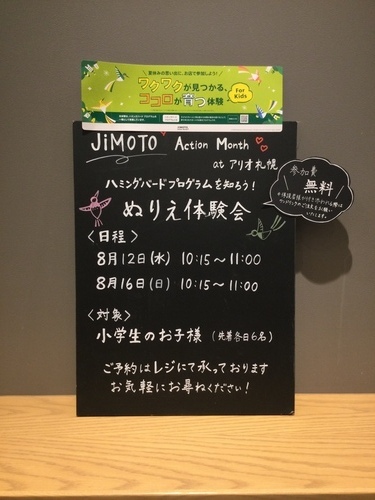 夏休みの思い出に、お店で参加しよう!
ワクワクが見つかる、
ココロが育つ体験
For
Kids
JiMOTO Action Month
at アリオ札幌
ハミングバードプログラムを知ろう!
ぬりえ体験会
〈日程〉
8月12日(水) 10:15〜11:00
8月16日(日) 10:15〜11:00
〈対象〉
小学生のお子様 (先着各日6名)
ご予約はレジにて承っております
お気軽にお尋ねください!
参加費
無料